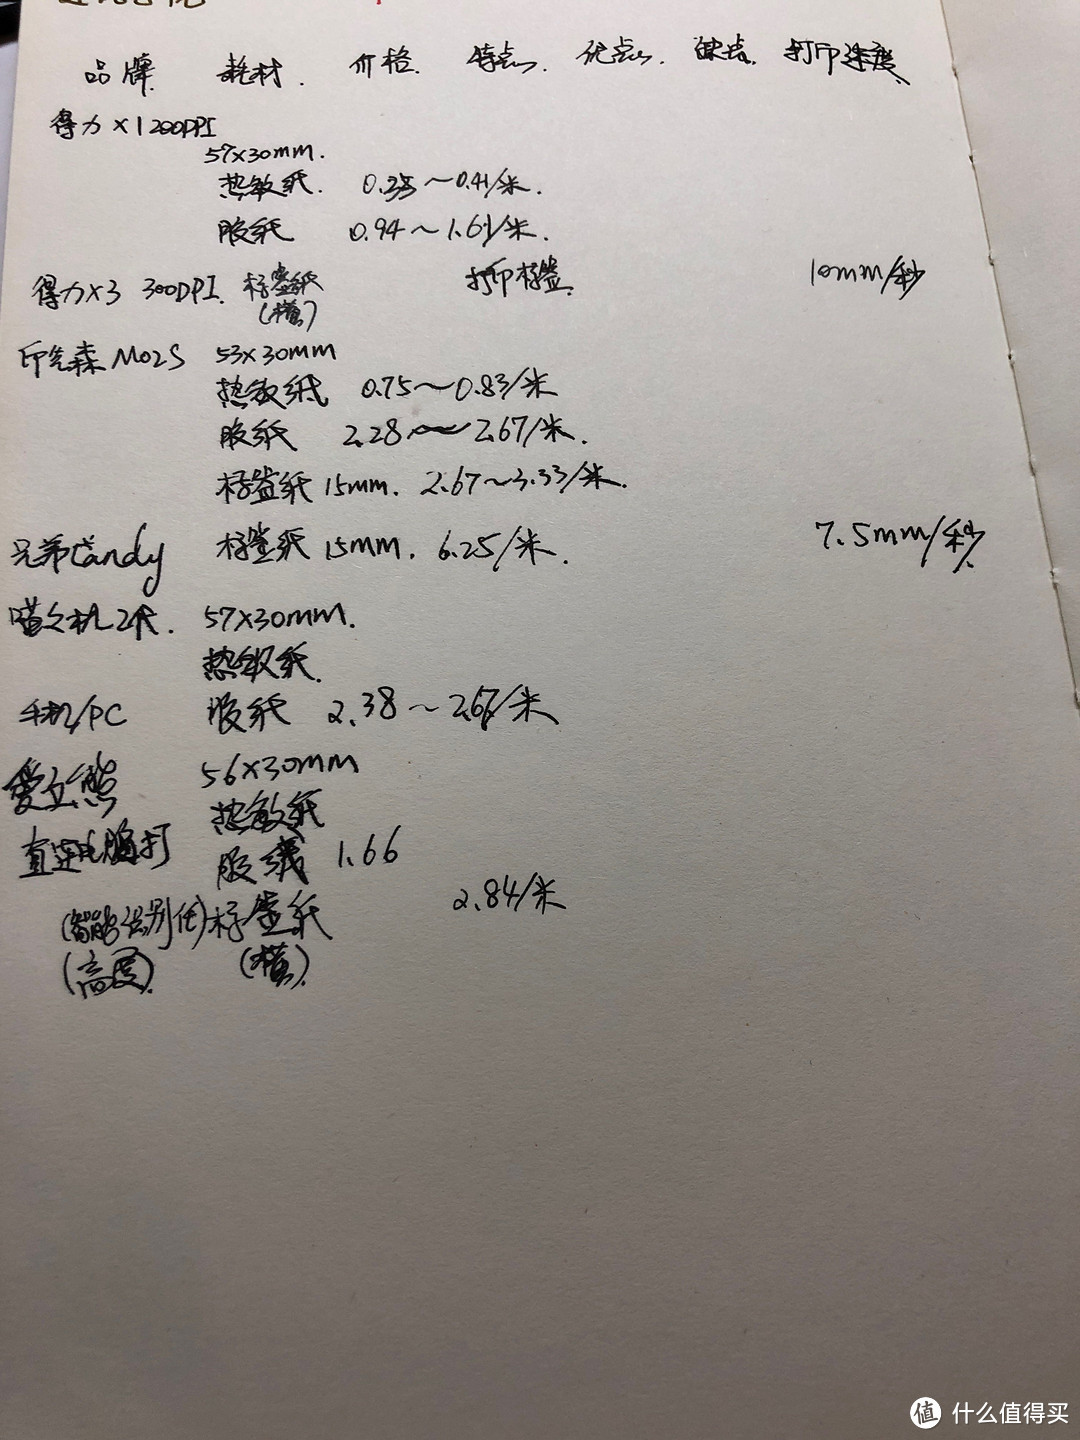 品牌. 耗材. 价格. 特点. 优点. 缺点. 打印速度.
得力 X1 200DPI
57×30mm.
热敏纸. 0.35～0.41/米.
胶纸 0.94～1.61/米.
得力X3 300DPI. 标签纸 打印标签. 10mm/秒
(横)
印先森 M02S 53×30mm
热敏纸 0.75～0.83/米
胶纸 2.28～2.67/米.
标签纸 15mm. 2.67～3.33/米.
兄弟 Candy 标签纸 15mm. 6.25/米. 7.5mm/秒.
喵喵机2代. 57×30mm.
热敏纸.
手机/PC 胶纸 2.38～2.67/米
爱立熊 56×30mm
热敏纸
直连电脑打 胶纸 1.66
2.84/米
(智能识别任) 标签纸
(高度). (横).
值 什么值得买